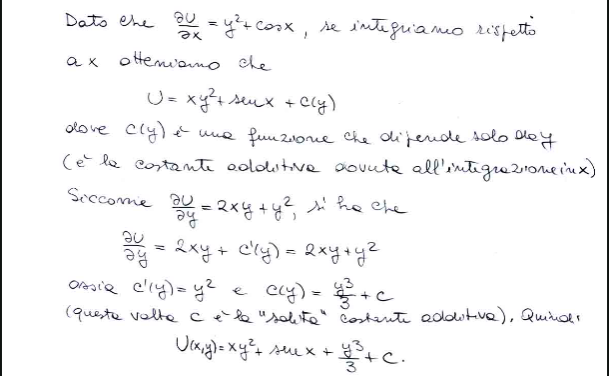 Dato che ∂U/∂x = y²+cosx, se integriamo rispetto
a x otteniamo che
U = xy²+ senx + c(y)
dove c(y) è una funzione che dipende solo da y
(è la costante additiva dovuta all'integrazione in x)
Siccome ∂U/∂y = 2xy + y², si ha che
∂U/∂y = 2xy + c'(y) = 2xy+y²
ossia c'(y) = y² e c(y) = y³/3 + c
(questa volta c è la "solita" costante additiva). Quindi
U(x,y) = xy²+ senx + y³/3 + c.